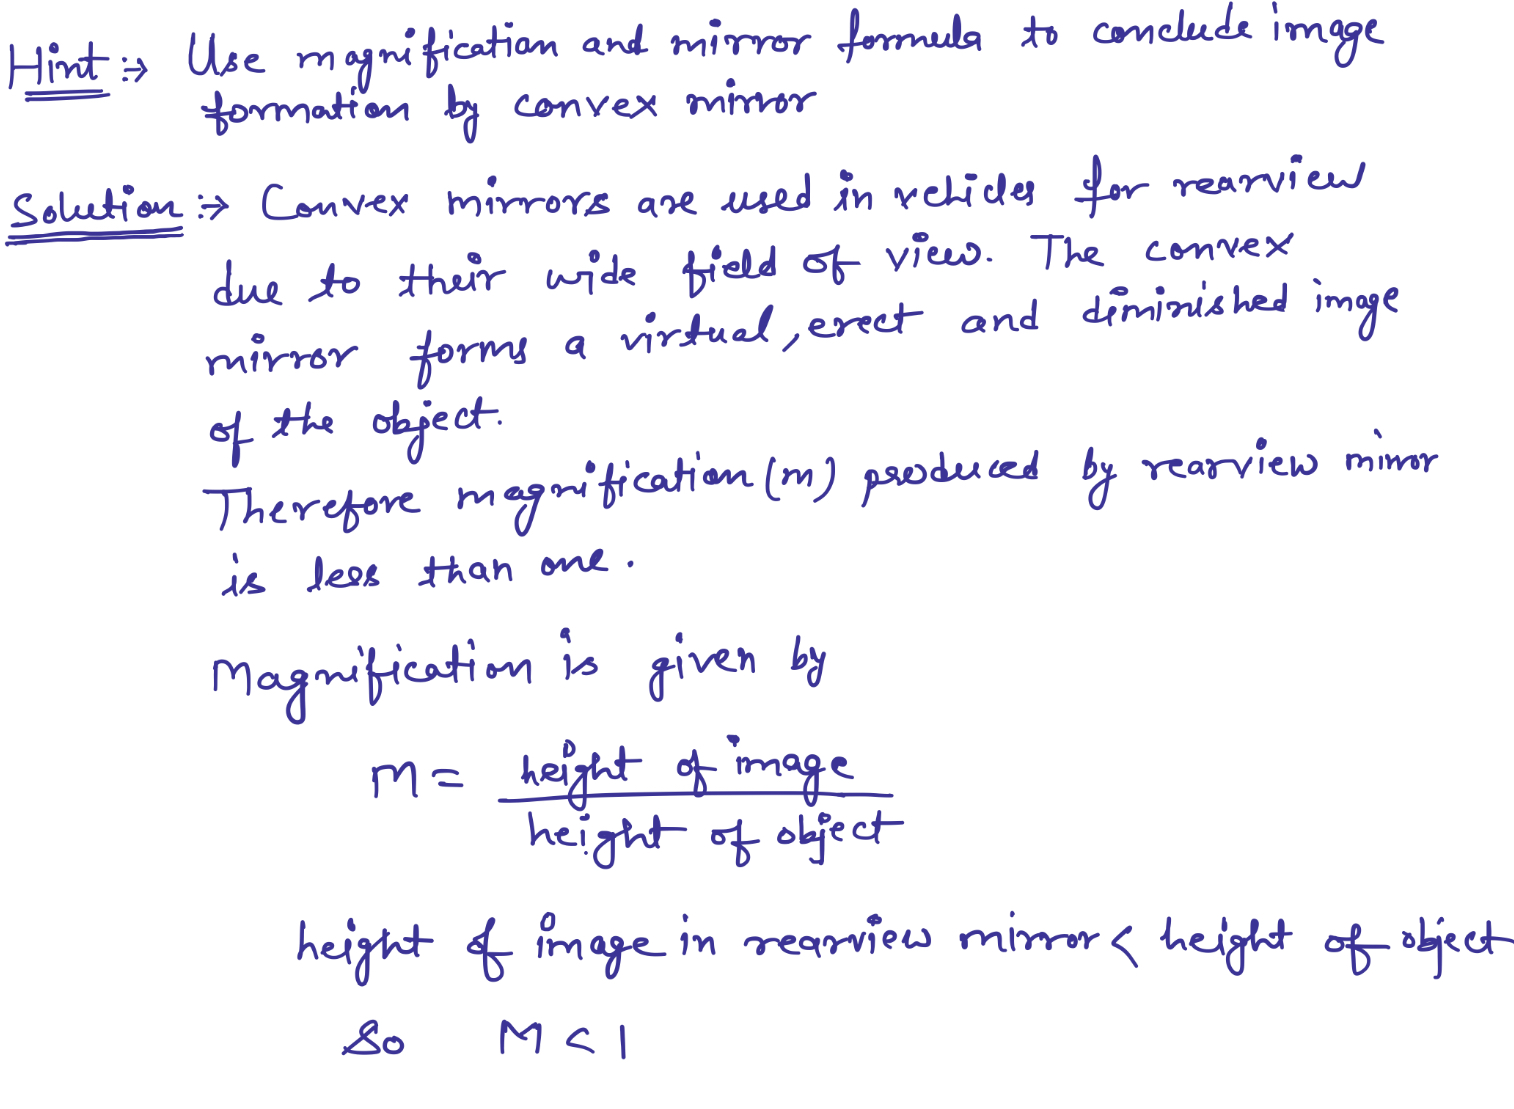 Hint :→ Use magnification and mirror formula to conclude image
formation by convex mirror
Solution :→ Convex mirrors are used in vehicles for rearview
due to their wide field of view. The convex
mirror forms a virtual, erect and diminished image
of the object.
Therefore magnification (m) produced by rearview mirror
is less than one.
Magnification is given by
m = height of image
height of object
height of image in rearview mirror < height of object
So M < 1